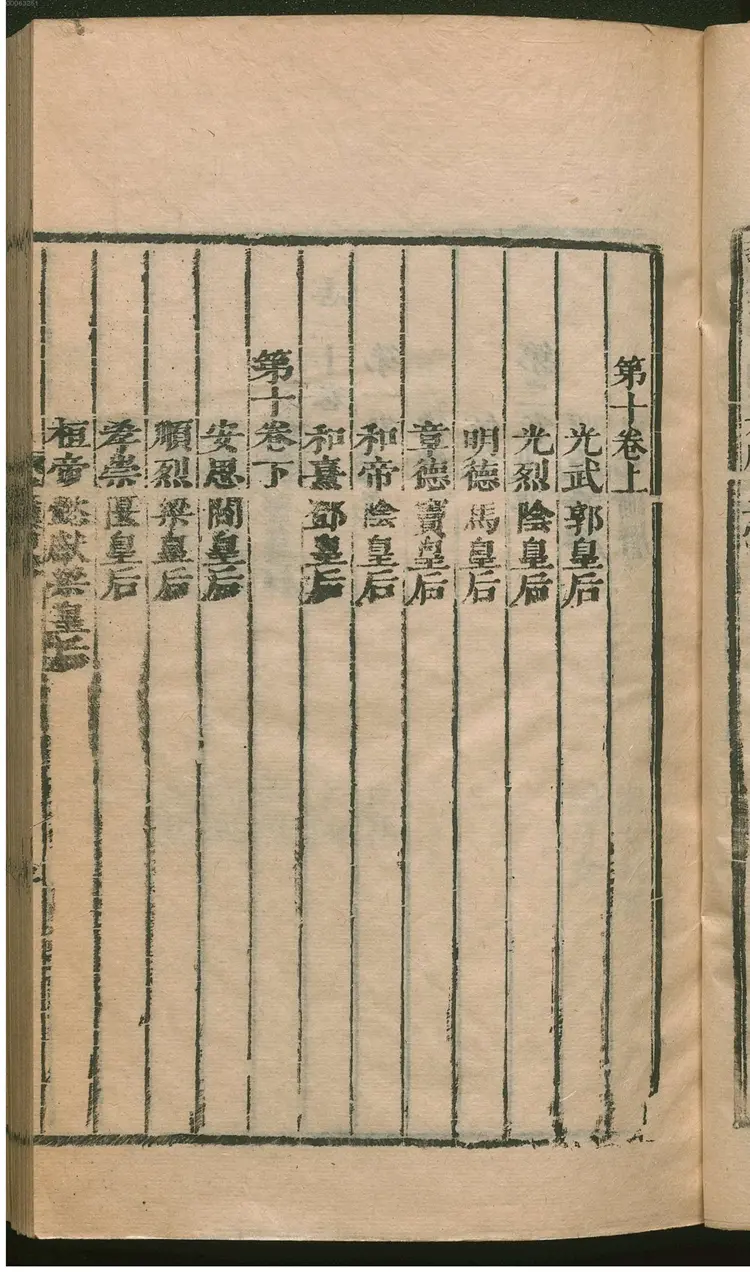 第十卷上
光武郭皇后
光烈陰皇后
明德馬皇后
章德竇皇后
和帝陰皇后
和熹鄧皇后
第十卷下
安思閻皇后
順烈梁皇后
孝崇匽皇后
桓帝懿獻梁皇后